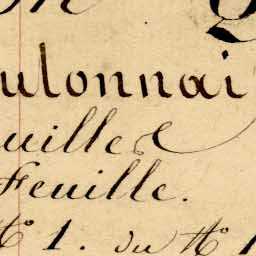 ulonnai
uille
Feuille.
N° 1. du N° 1